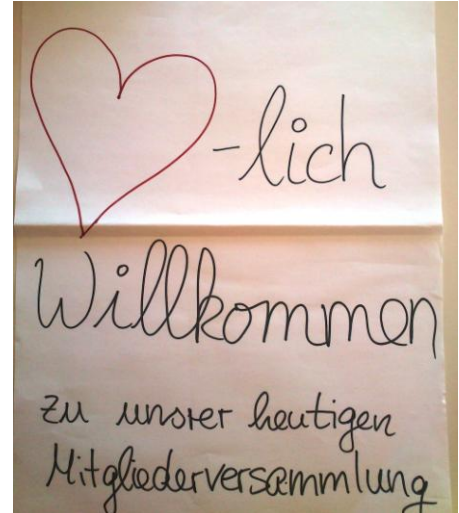 -lich
Willkommen
zu unsrer heutigen
Mitgliederversammlung